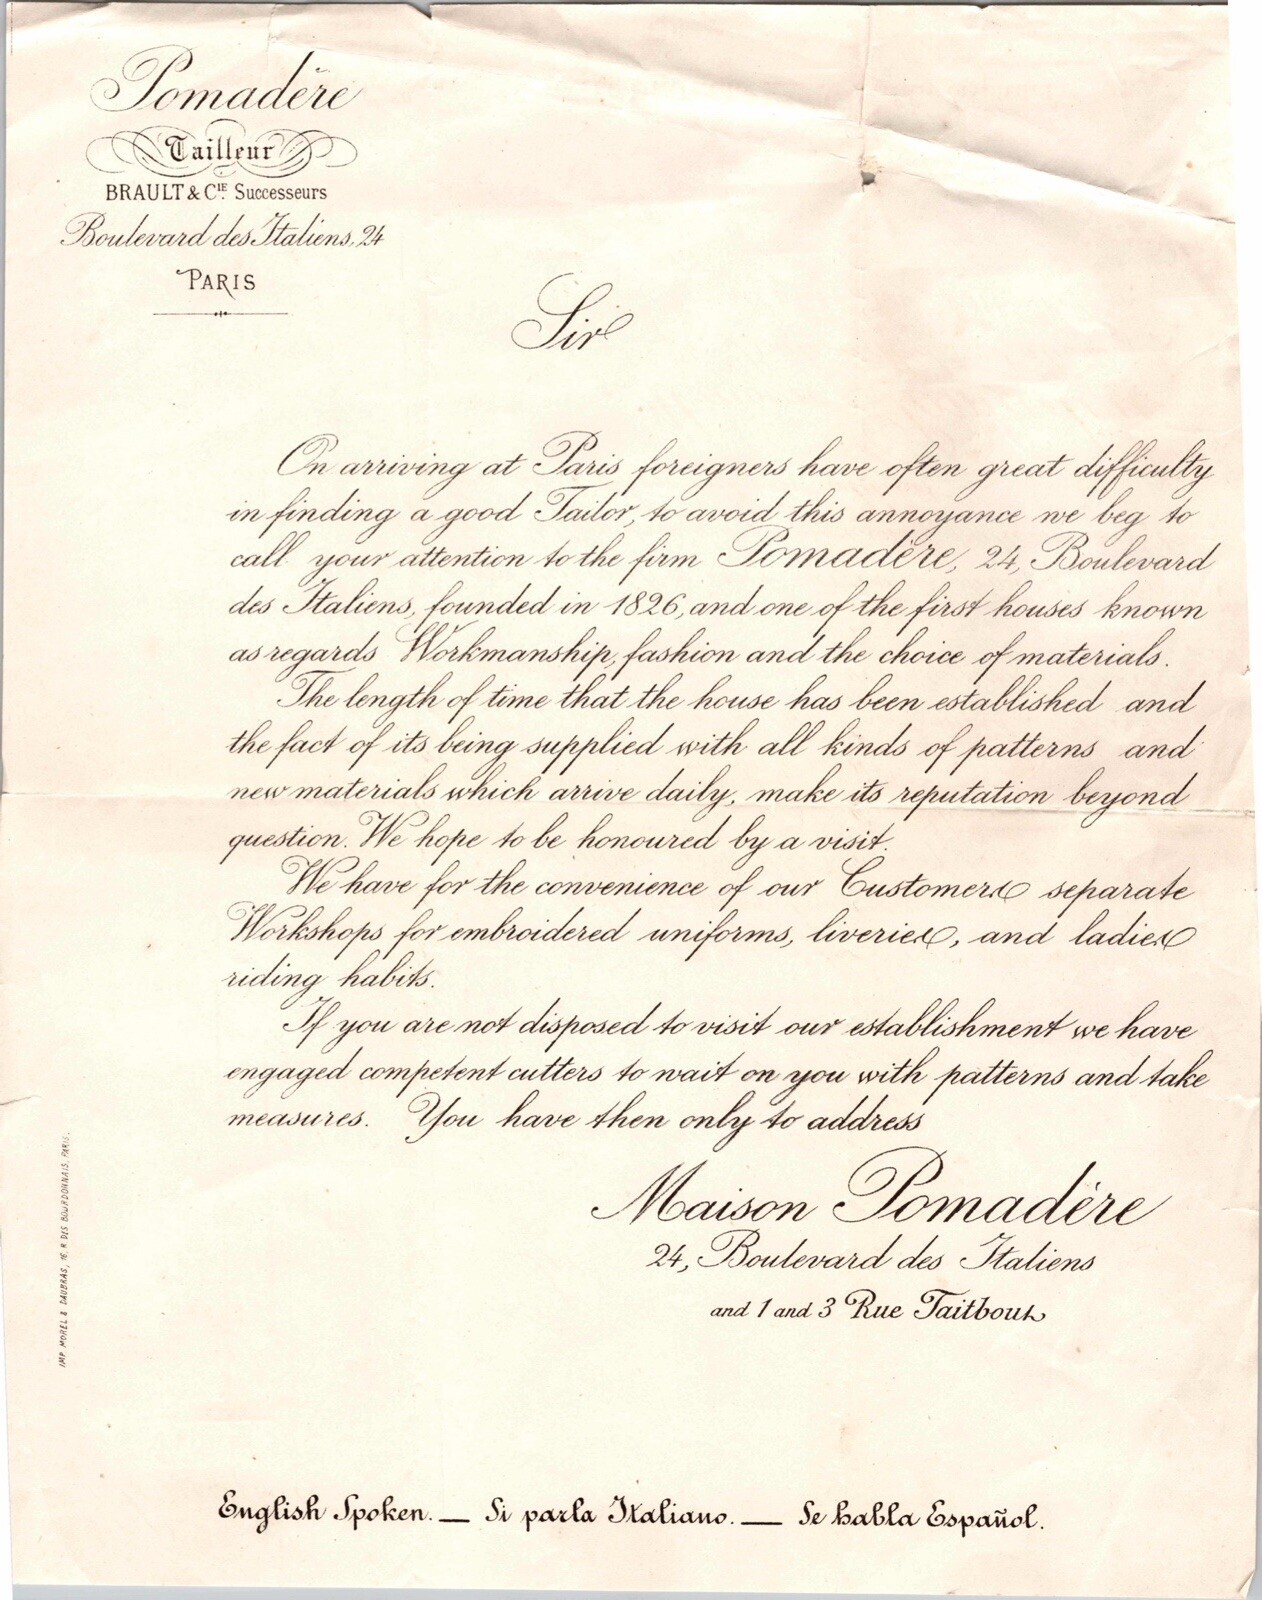 Pomadère
Tailleur
BRAULT & CIE. Successeurs
Boulevard des Italiens, 24
PARIS
Sir
On arriving at Paris foreigners have often great difficulty
in finding a good Tailor, to avoid this annoyance we beg to
call your attention to the firm Pomadère, 24, Boulevard
des Italiens, founded in 1826, and one of the first houses known
as regards Workmanship, fashion and the choice of materials.
The length of time that the house has been established and
the fact of its being supplied with all kinds of patterns and
new materials which arrive daily, make its reputation beyond
question. We hope to be honoured by a visit.
We have for the convenience of our Customers separate
Workshops for embroidered uniforms, liveries, and ladies
riding habits.
If you are not disposed to visit our establishment we have
engaged competent cutters to wait on you with patterns and take
measures. You have then only to address
Maison Pomadère
24, Boulevard des Italiens
and 1 and 3 Rue Taitbout
IMP. MOREL & DAUBRAS, 16, R. DES BOURDONNAIS. PARIS.
English Spoken. — Si parla Italiano. — Se habla Español.